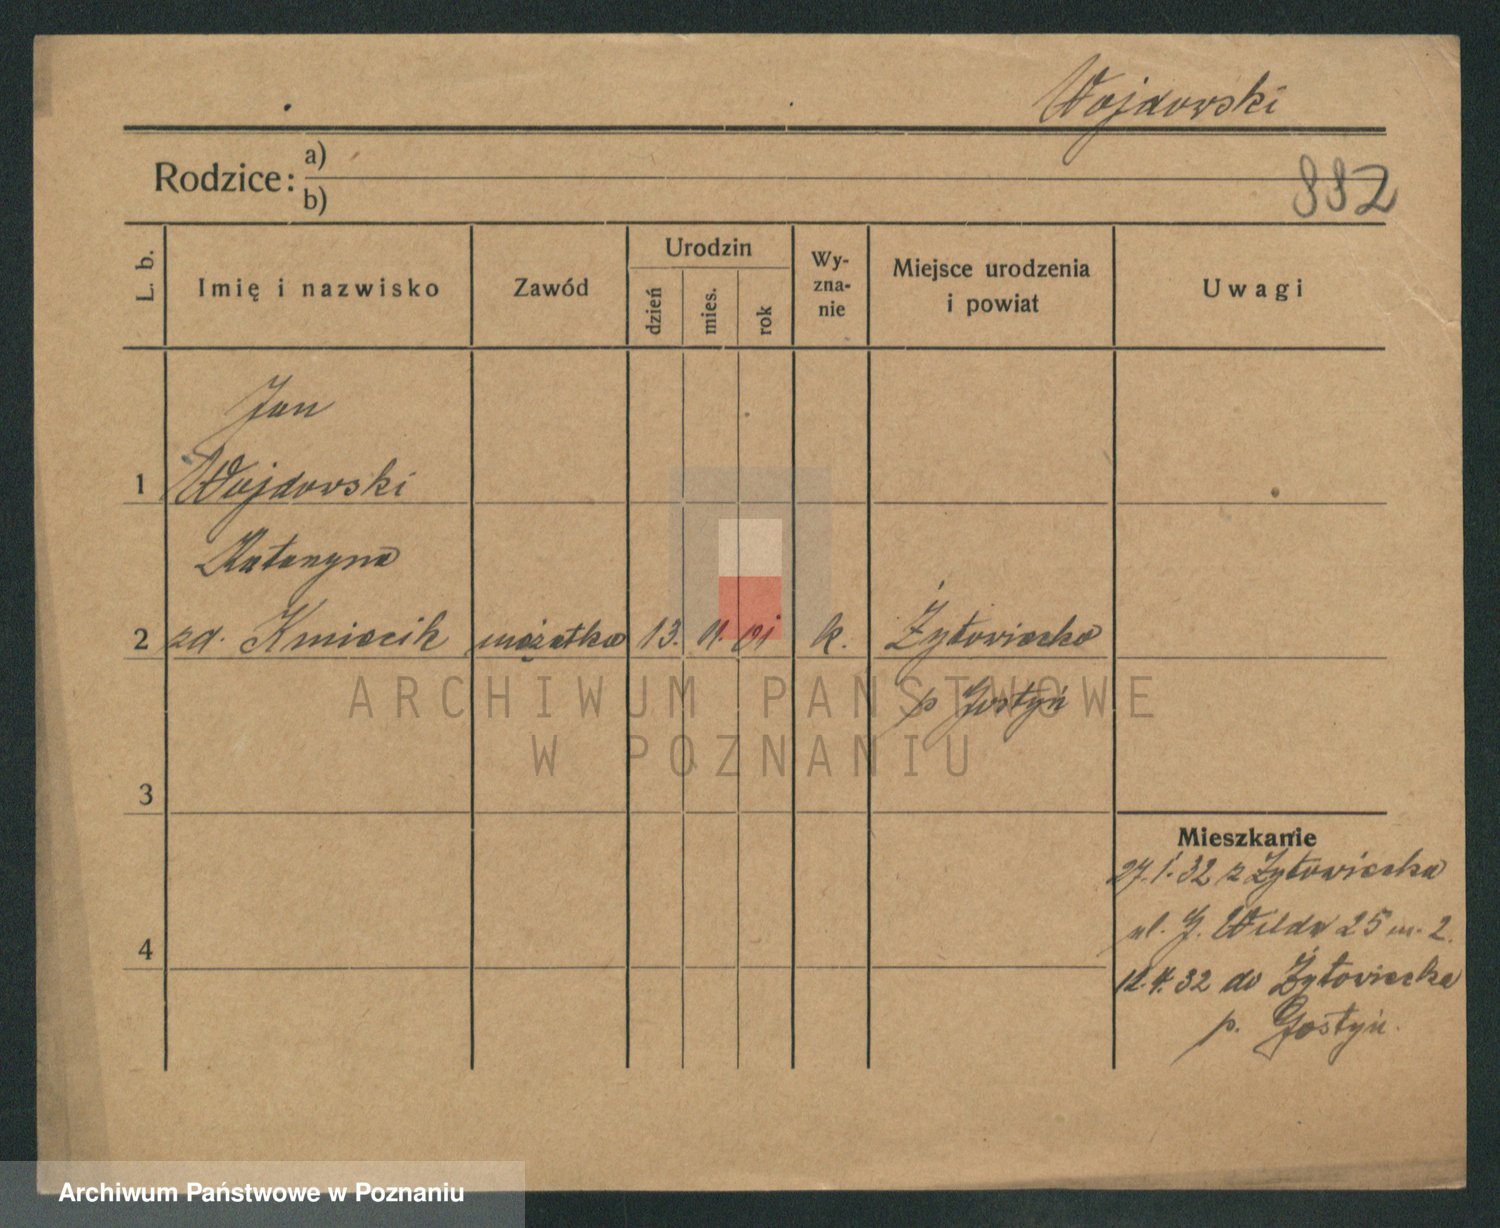 Wojdowski
Rodzice: a)
b)
882
L. b.
Imię i nazwisko
Zawód
Urodzin
dzień
mies.
rok
Wy-
zna-
nie
Miejsce urodzenia
i powiat
Uwagi
Jan
1 Wojdowski
Katarzyna
2 zd. Kmiecik mężatka 13. 11. 01 k. Żytowiecko
p Gostyń
ARCHIWUM PAŃSTWOWE
W POZNANIU
3
Mieszkanie
27.1.32 z Żytowiecka
ul. G. Wilda 25 m. 2.
4
12.4.32 do Żytowiecka
p. Gostyń.
Archiwum Państwowe w Poznaniu